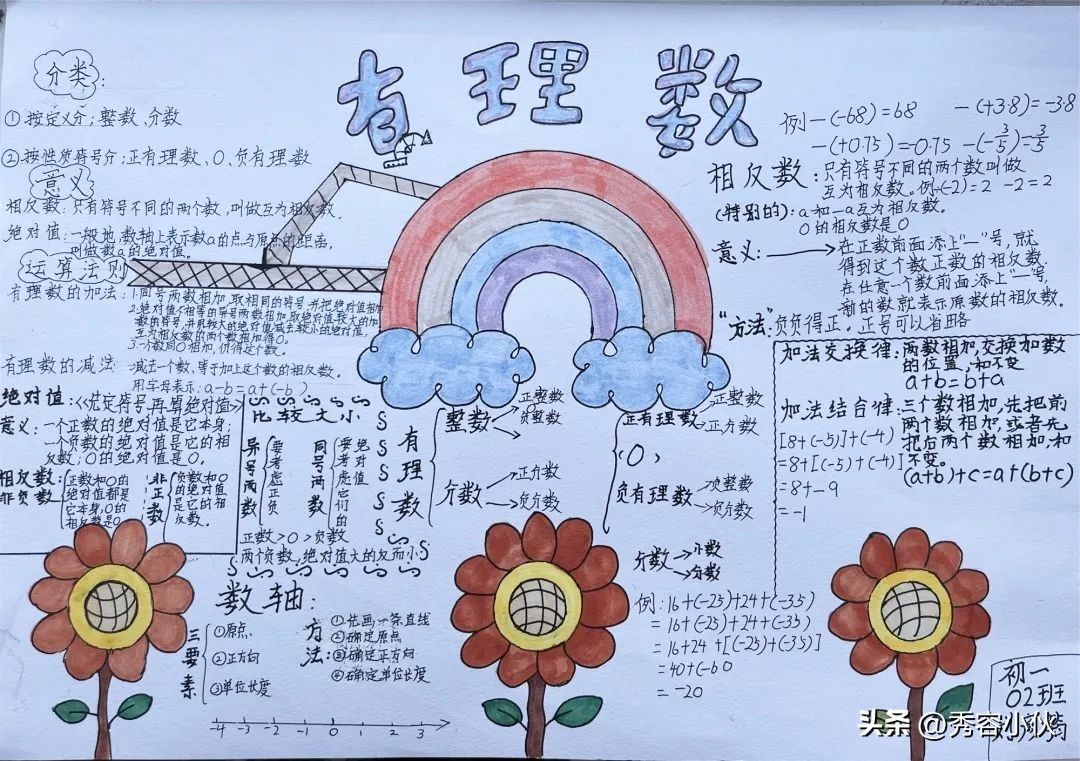 有理数
分类:
①按定义分;整数、分数
②按性质符号分;正有理数、0、负有理数
意义
相反数:只有符号不同的两个数,叫做互为相反数.
绝对值:一般地,数轴上表示数a的点与原点的距离,
叫做数a的绝对值。
运算法则
有理数的加法:1.同号两数相加,取相同的符号,并把绝对值相加
2.绝对值不相等的异号两数相加,取绝对值较大的加
数的符号,并用较大的绝对值减去较小的绝对值,
互为相反数的两个数相加得0。
3.一个数同0相加,仍得这个数。
有理数的减法:减去一个数,等于加上这个数的相反数。
用字母表示:a-b=a+(-b)
绝对值:<<先定符号,再算绝对值>>
意义:一个正数的绝对值是它本身;
一个负数的绝对值是它的相
反数;0的绝对值是0。
相反数:
非负数
正数和0的
绝对值都是
它本身,0的
相反数是0
非正数
负数和0
的绝对值
是它的相
反数。
比较大小
异号两数
要考虑正负
同号两数
要考虑它们的
绝对值
正数>0>负数
两个负数,绝对值大的反而小
有理数
整数
正整数
负整数
分数
正分数
负分数
正有理数
正整数
正分数
(0)
负有理数
负整数
负分数
分数
小数
分数
例-(-68)=68 -(+3.8)=-3.8
-(+0.75)=0.75 -(-3/5)=3/5
相反数:只有符号不同的两个数叫做
互为相反数。例-(-2)=2 -2=2
(特别的):a和-a互为相反数。
0的相反数是0
意义:
在正数前面添上"一"号,就
得到这个数正数的相反数.
在任意一个数前面添上"一"号,
新的数就表示原数的相反数.
"方法":负负得正。正号可以省略
加法交换律:两数相加,交换加数
的位置,和不变
a+b=b+a
加法结合律:三个数相加,先把前
两个数相加,或者先
把后两个数相加,和
不变。
(a+b)+c=a+(b+c)
[8+(-5)]+(-4)
=8+[(-5)+(-4)]
=8+-9
=-1
数轴:
三要素
①原点
②正方向
③单位长度
方法:
①先画一条直线
②确定原点
③确定正方向
④确定单位长度
-4 -3 -2 -1 0 1 2 3
例:16+(-25)+24+(-35)
=16+(-25)+24+(-35)
=16+24+[(-25)+(-35)]
=40+(-60
=-20
初一
02班
头条 @秀容小伙